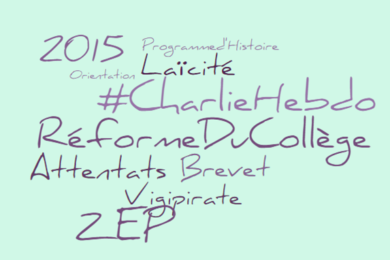 2015 Programmed'Histoire
Orientation Laïcité
#CharlieHebdo
RéformeDuCollège
Attentats Brevet
Vigipirate
ZEP